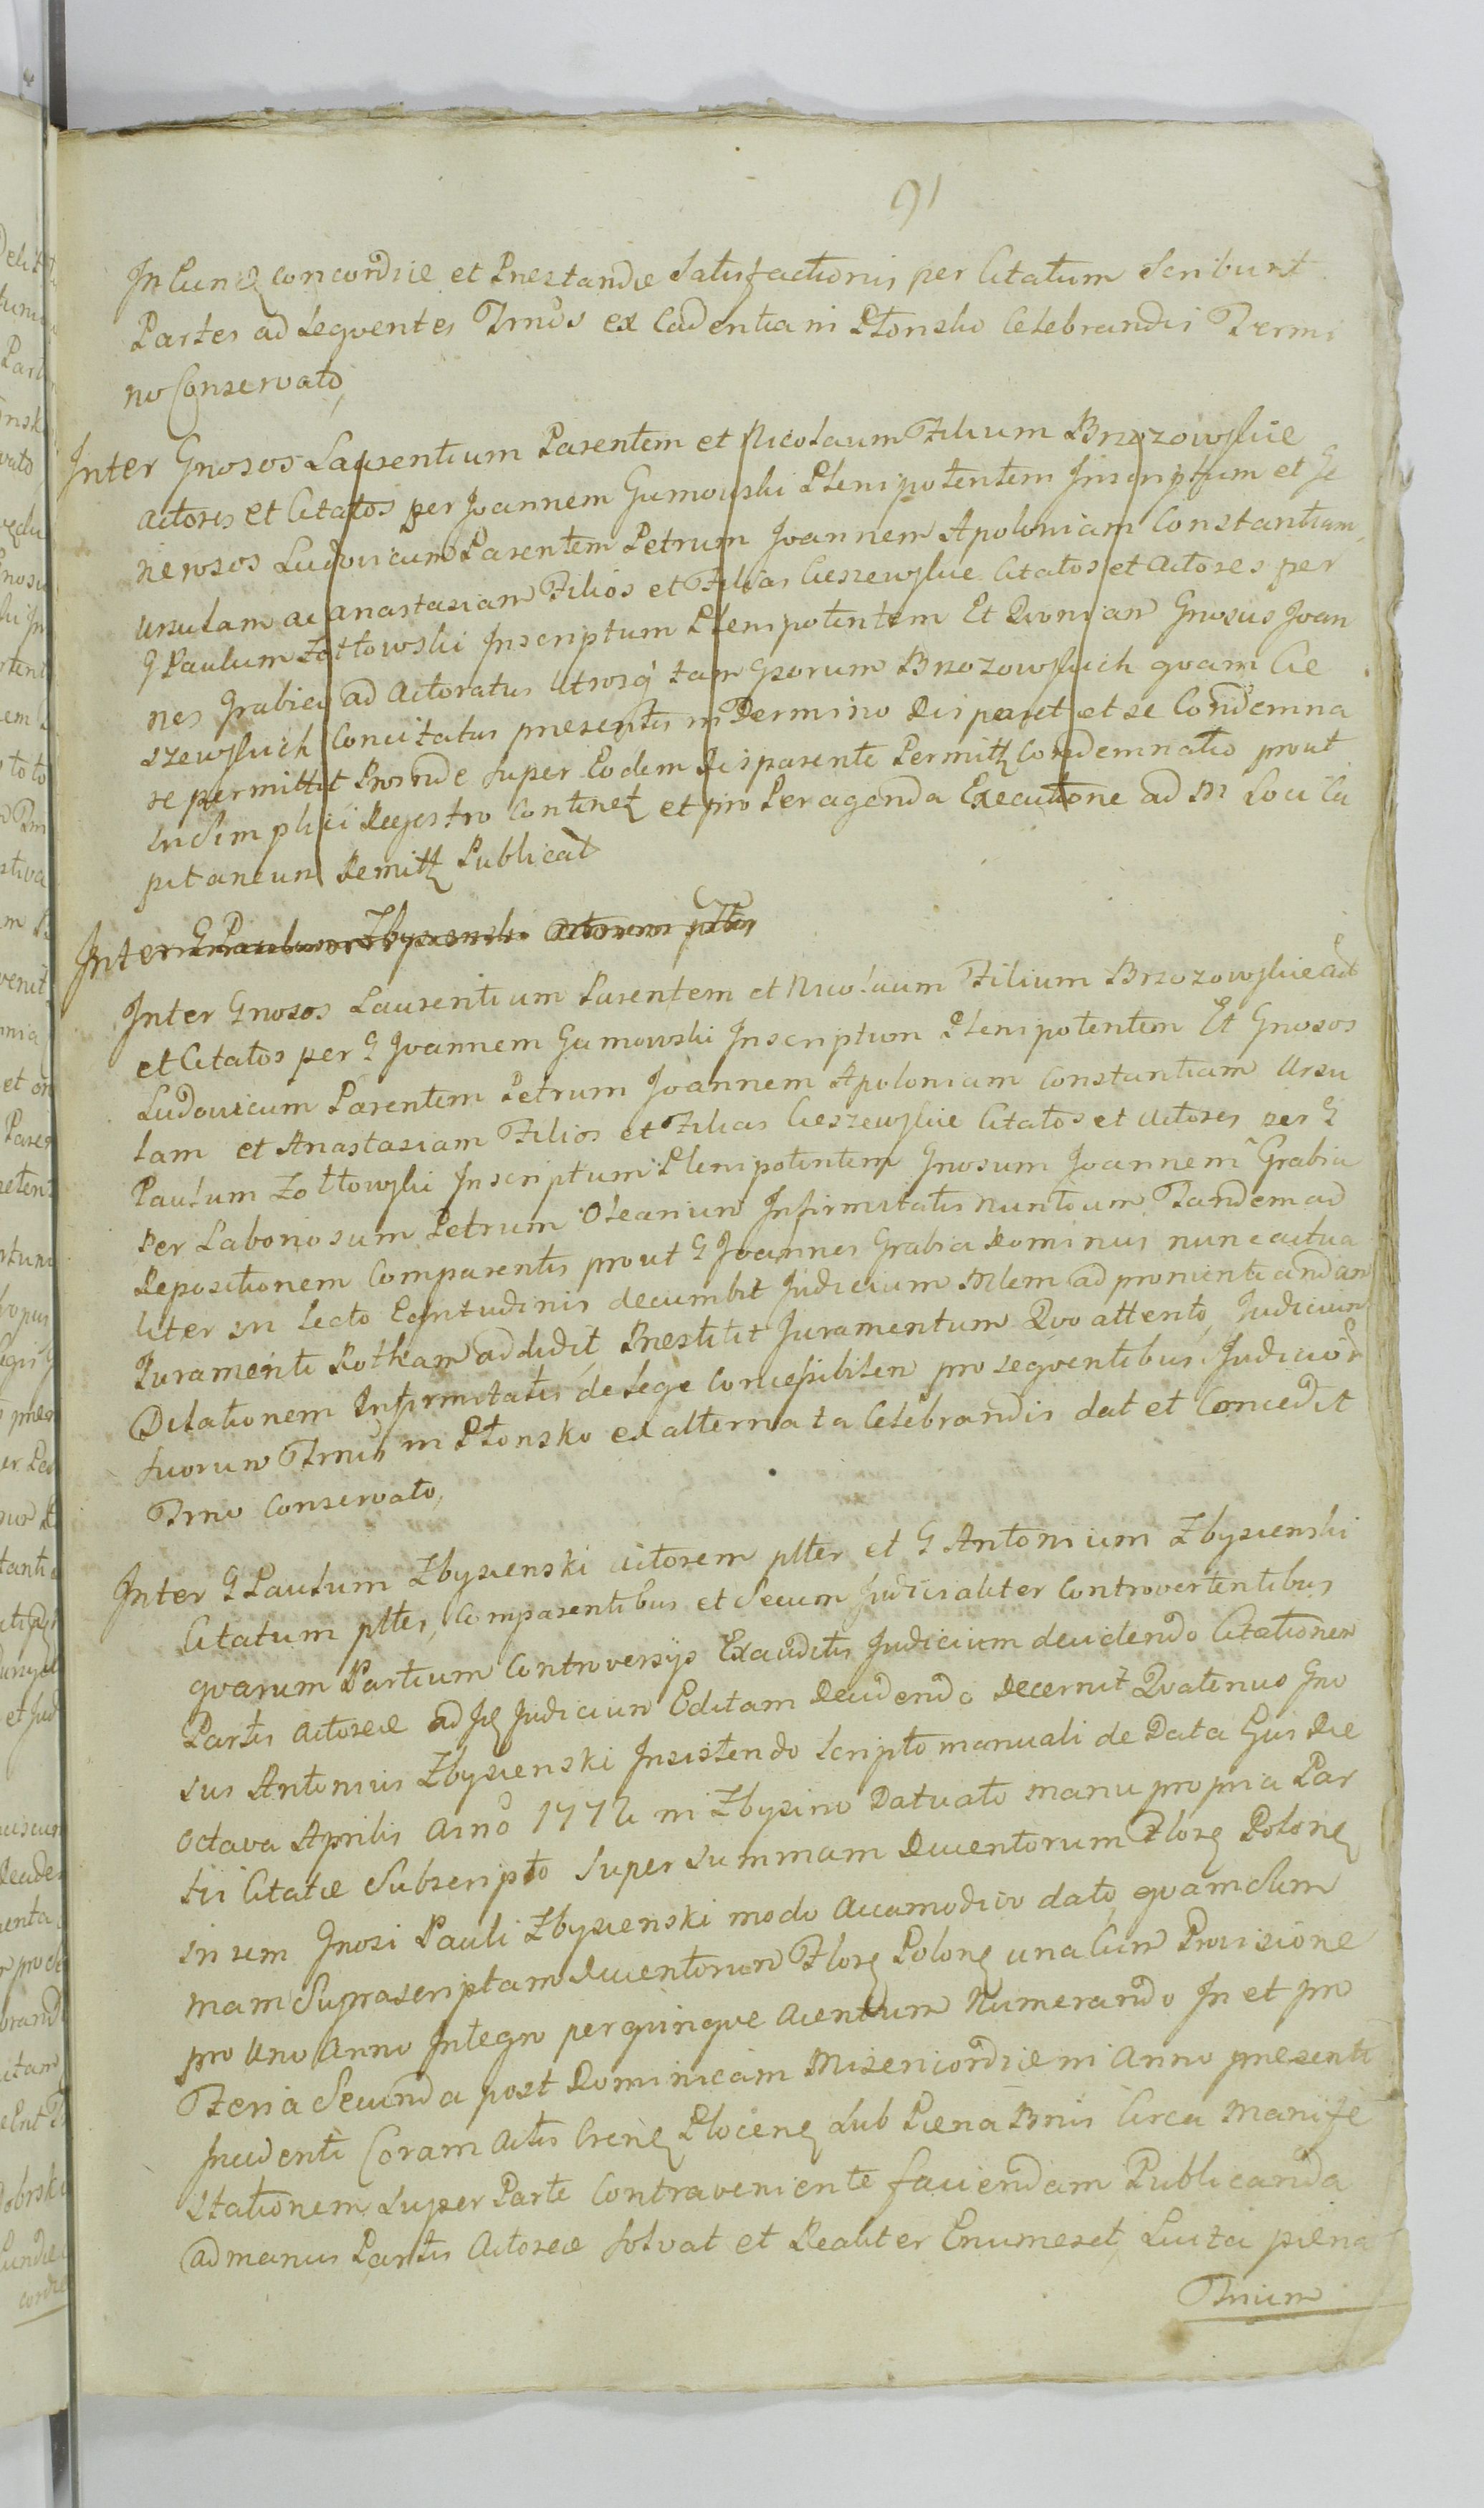 91
In Punct concordiæ et Præstandæ Satisfactionis per Citatum Scribunt
Partes ad Seqventes Trnos ex Cadentia in Płonsko Celebrandis Termi
no Conservato,
Inter Gnosos Laurentium Parentem et Nicolaum Filium Brzozowskie
actores et Citatos per Joannem Gumowski Plenipotentem Inscriptum et Ge
nerosos Ludovicum Parentem Petrum Joannem Apoloniam Constantiam,
Ursulam ac Anastasiam Filios et Filias Cieszewskie Citatos et Actores per
G Paulum Zołtowski Inscriptum Plenipotentem Et Qvoniam Gnosus Joan
nes Grabia ad Actoratus Utrosq tam Gsorum Brzozowskich qvam Cie
szewskich Concitatus presentis in Termino Disparet et se Condemna
re permittit Proinde super Eodem Disparente Permitt Condemnatio prout
in Simplici Regestro Continet et pro Peragenda Executione ad M Loci Ca
pitaneum Remitt Publicat
Inter G Paulum Zbysienski Actorem pltter
Inter Gnosos Laurentium Parentem et Nicolaum Filium Brzozowskie act
et Citatos per G Joannem Gumowski Inscriptum Plenipotentem Et Gnosos
Ludovicum Parentem Petrum Joannem Apoloniam Constantiam Ursu
lam et Anastasiam Filios et Filias Cieszewskie Citatos et Actores per G
Paulum Zołtowski Inscriptum Plenipotentem Gnosum Joannem Grabia
per Laboriosum Petrum Olearium Infirmitatis Nuntium Tandem ad
Depositionem Comparentis prout G Joannes Grabia Dominus nunc actua
liter in Lecto Egritudinis decumbit Judicium Mlem ad pronuntiandam
Juramenti Rotham addidit Præstitit Juramentum Qvo attento, Judicium
Dilationem Infirmitatis de Lege Concessibilem pro seqventibus Judicior
suorum Trnis in Płonsko ex alternata Celebrandis dat et Concedit
Trno Conservato,
Inter G Paulum Zbysienski Actorem pltter et G Antonium Zbysienski
Citatum pltter, Comparentibus et Secum Judicialiter Controvertentibus
qvarum Partium Controversys Exauditis Judicium decidendo Citationem
Partis Actoreæ ad Jd Judicium Editam Decidendo Decernit Qvatenus Gno
sus Antonius Zbysienski Insistendo Scripto manuali de Data Gus Die
Octava Aprilis Anno 1772 in Zbysino Datuato manu propria Par
tis Citatæ Subscripto super summam Ducentorum Flore Polone
in rem Gnosi Pauli Zbysienski modo Accamodivo dato, qvam Sum
mam Suprascriptam Ducentorum Flore Polone una Cum Provisione
pro Uno Anno Integro per qvinque a centum Numerando In et pro
Feria Secunda post Dominicam Misericordiæ in Anno presenti
Incidenti Coram Actis Crene Plocene Sub Pæna Bnis Circa Manife
stationem super Parte Contraveniente faciendam Publicanda
ad manus Partis Actoreæ Solvat et Realiter Enumeret, Luita pæna
Trium